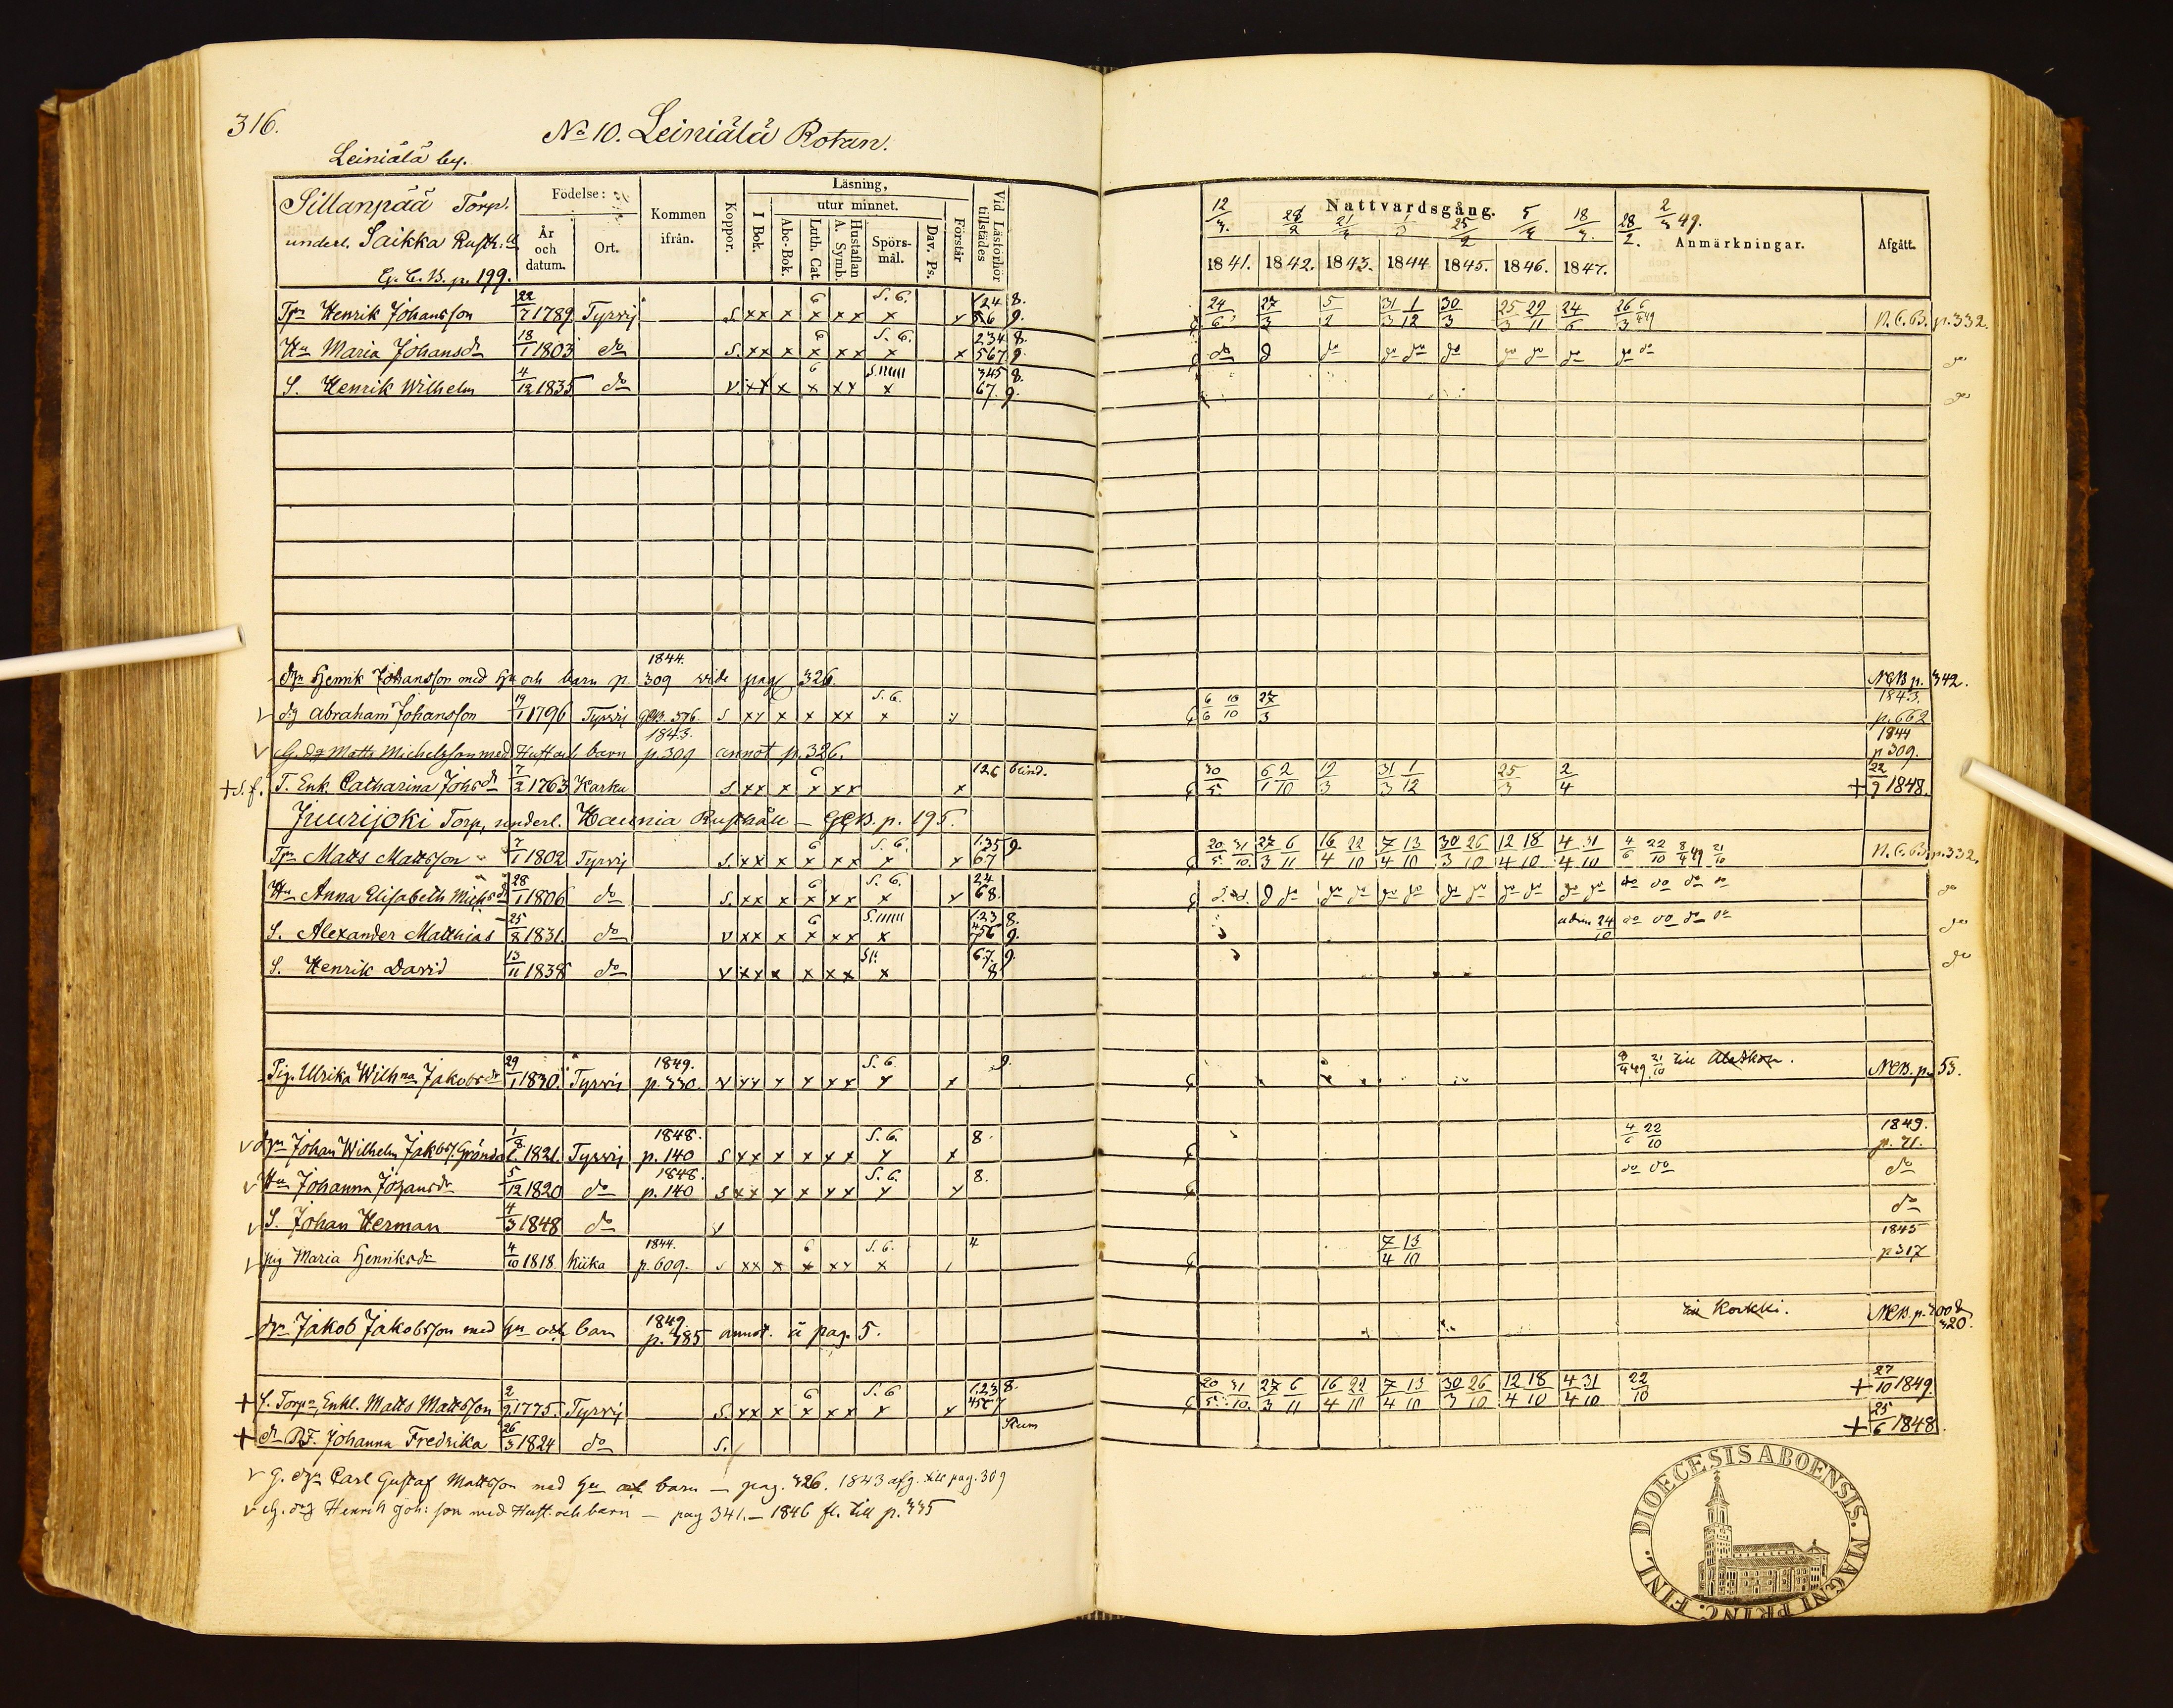 316.
No 10. Leiniälä Rotan.
Leiniälä by.
Sillanpää Torp.
underl. Saikka Rusth:ll
G. C. B. p. 199.
Födelse:
År och datum.
Ort.
Kommen ifrån.
Koppor.
Läsning,
I Bok.
utur minnet.
Abc-Bok.
Luth. Cat.
Hustaflan A. Symb.
Spörsmål.
Dav. Ps.
Förstår
Vid Läsförhör tillstädes
Nattvardsgång.
12/3. 28/2 21/4 25/2 5/4 18/3. 28/2. 2/3 49.
1841. 1842. 1843. 1844 1845. 1846. 1847.
Anmärkningar.
Afgått.
Tpr Henrik Johansson 22/7 1789 Tyrvis S. xx x 6 x xx S. 6. x x 124 8. 56 9. 24/6 27/3 5/2 31/3 1/12 30/3 25/3 29/11 24/6 26/3 6/4 49 N. C. B. p. 332.
Hu Maria Johansdr 18/1 1803 do S. xx x 6 x xx S. 6. x x 234 8. 567 9. do do do do do do do do do do do do
S. Henrik Wilhelm 4/12 1835 do v xx x 6 x xx x 345 8. 67. 9. do
dr Henrik Johansson med hu och barn p. 1844. 309 vide pag 326. NCB p. 342.
v drg Abraham Johansson 19/1 1796 Tyrvis GCB. 376. S xx x x xx S. 6. x x 6/6 10/10 27/3 1843. p. 662
v G. drg Matts Michelsson med Hust och barn 1843. p. 309 annot p. 326. 1844 p 309.
+ S. f. T. Enk. Catharina Johsdr 7/2 1763 Karku S xx x 6 x xx x 126 blind. 30/5 6/1 2/10 19/3 31/3 1/12 25/3 2/4 + 22/9 1848.
Juurijoki Torp, underl. Haunia Rusthåll — GCB. p. 195.
Tpr Matts Mattsson 7/1 1802 Tyrvis S. xx x 6 x xx S. 6. x x 1.35 9. 67 20/5 31/10 27/3 6/11 16/4 22/10 7/4 13/10 30/3 26/10 12/4 18/10 4/4 31/10 4/6 22/10 8/4 49 21/10 N. C. B. p. 332.
Hu Anna Elisabeth Michsdr 28/1 1806 do S. xx x 6 x xx S. 6. x x 24 68. do do do do do do do do do do do do do do do do
S. Alexander Matthias 25/8 1831. do v xx x 6 x xx x 123 8. 456 9. adm 24/10 do do do do do
S. Henrik David 13/11 1838 do v xx x x xx x 67. 9. 8 do
Pig. Ulrika Wilhna Jakobsdr 29/1 1830. Tyrvis 1849. p. 330. v xx x x xx S. 6 x x 9. 8/4 49. 21/10 till NCB. p. 53.
v dr Johan Wilhelm Jakobss. 1/8. 1821. Tyrvis 1848. p. 140 S xx x x xx S. 6. x x 8. 4/6 22/10 1849. p. 71.
v Hu Johanna Johansdr 5/12 1820 do 1848. p. 140 S xx x x xx S. 6. x x 8. do do do
v S. Johan Herman 4/3 1848 do v do
v pig Maria Henriksdr 4/10 1818. Kiika 1844. p. 609. S xx x 6 x xx S. 6. x 4 7/4 13/10 1845 p 317
dr Jakob Jakobsson med hu och barn 1849. p. 385 annot. å pag. 5. till Korkki. NCB. p. 320.
+ f. Torpr, Enkl. Matts Mattsson 2/9 1775. Tyrvis S. xx x 6 x xx S. 6 x x 1.23 8. 20/5 31/10 27/3 6/11 16/4 22/10 7/4 13/10 30/3 26/10 12/4 18/10 4/4 31/10 22/10 + 27/10 1849
+ dr Johanna Fredrika 26/3 1824 do S. + 25/6 1848.
v G. dr Carl Gustaf Mattsson med hu och barn — pag. 326. 1843 afg. till pag. 309
v G. drg Henrik Joh: son med Hust. och barn — pag 341. — 1846 fl. till p. 335
DIOECESIS ABOENSIS. MAGNI PRINC. FINL.